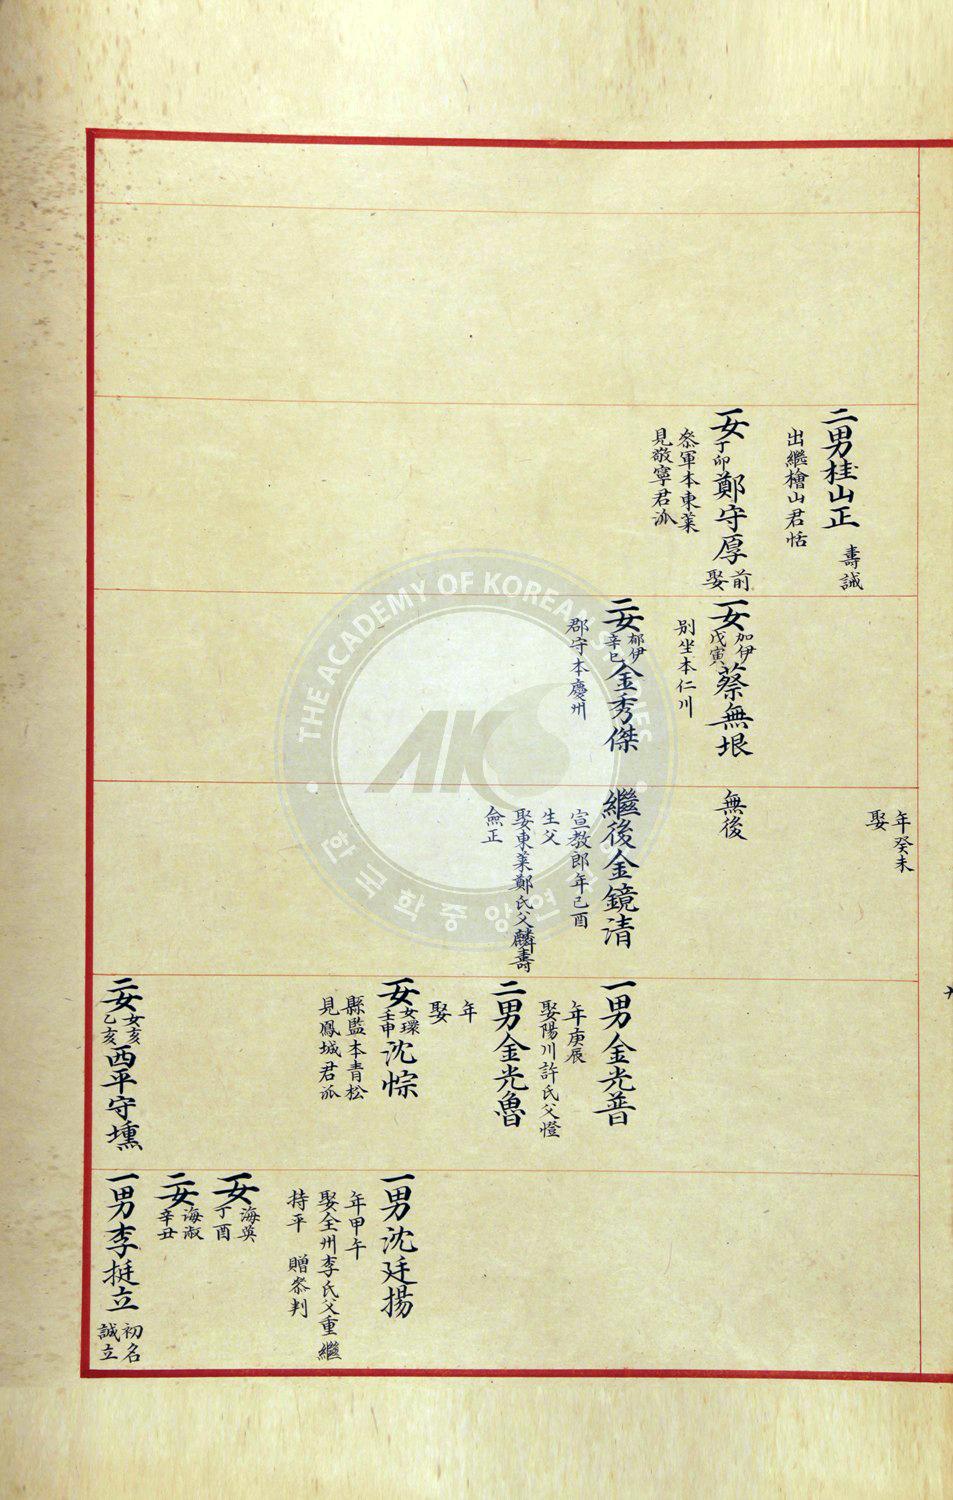 二男桂山正 壽誠
出繼檜山君恬
一女丁卯鄭守厚前娶
叅軍本東萊
見敬寧君派
一女加伊戊寅蔡無垠
別坐本仁川
二女郁伊辛巳金秀傑
郡守本慶州
年癸未
娶
無後
繼後金鏡清
宣教郎年己酉
生父
娶東萊鄭氏父麟壽
僉正
一男金光普
年庚辰
娶陽川許氏父憕
二男金光魯
年
娶
一女女環壬申沈悰
縣監本青松
見鳳城君派
二女女亥乙亥西平守壎
一男沈廷揚
年甲午
娶全州李氏父重繼
持平 贈叅判
一女海英丁酉
二女海淑辛丑
一男李挺立初名誠立
THE ACADEMY OF KOREAN STUDIES
AKS
한국학중앙연구원